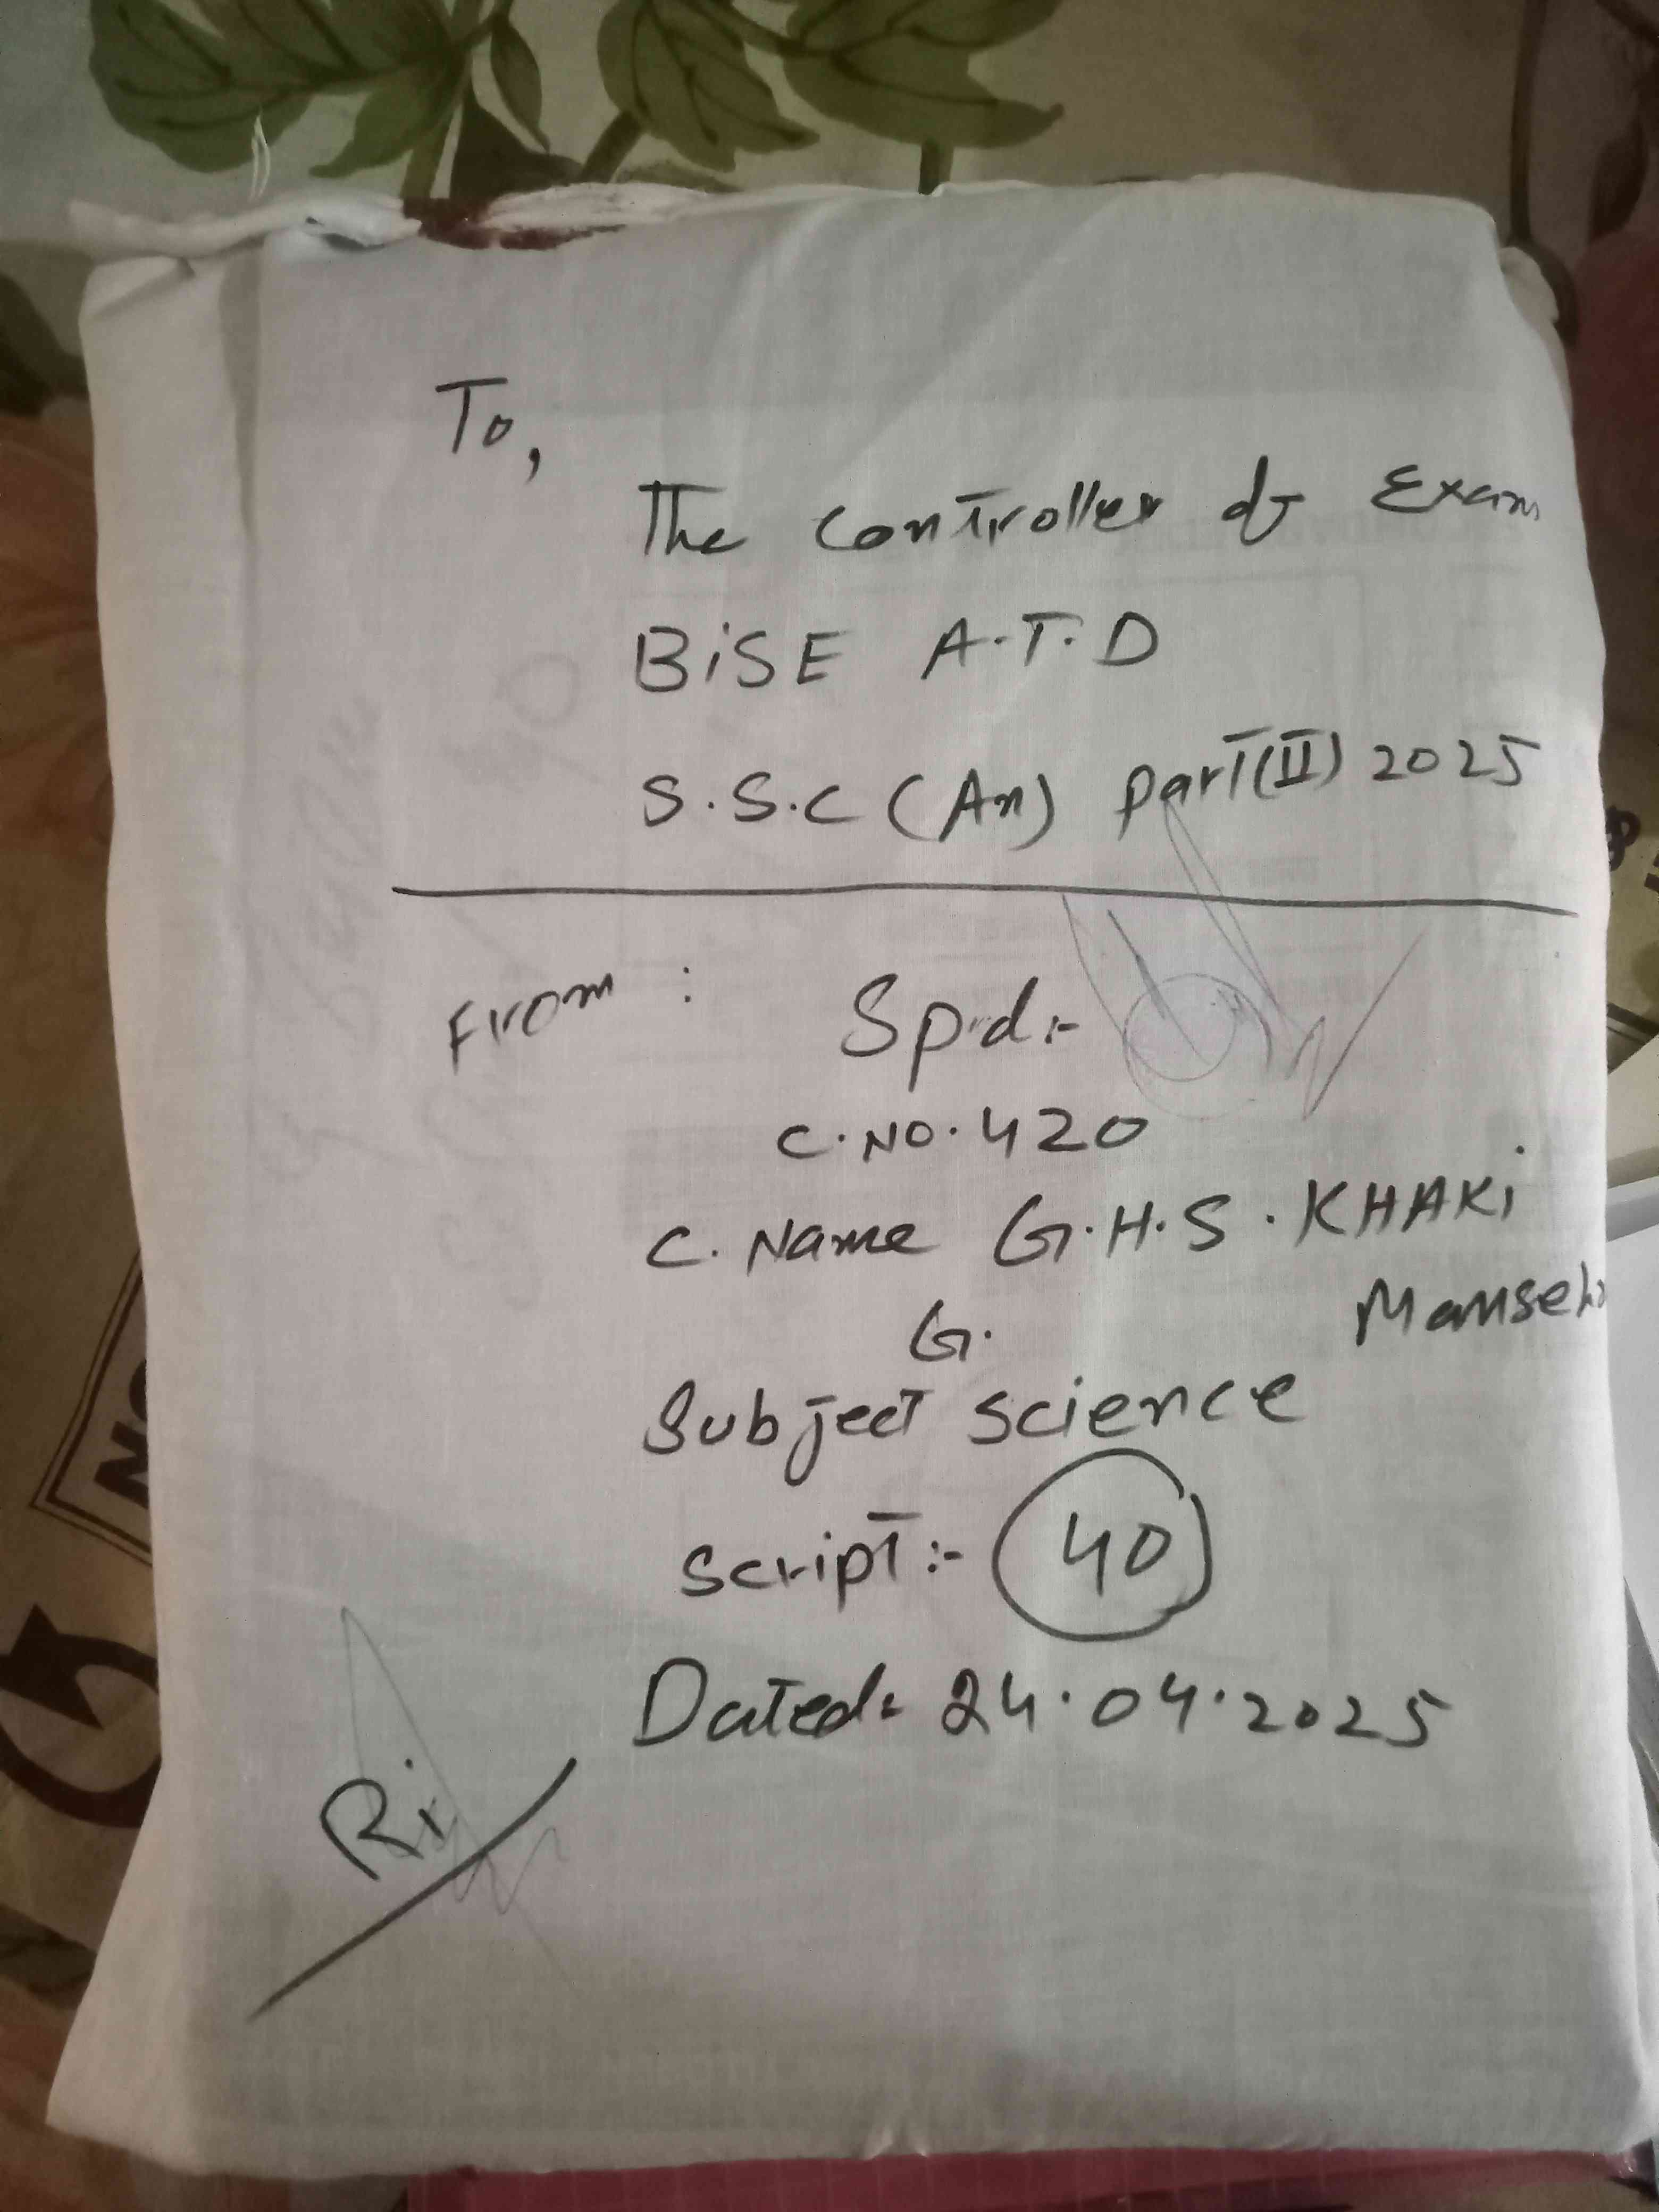 To,
The Controller of Exam
BiSE A.T.D
S.S.C (An) Part (II) 2025
From : Spd:-
C.NO.420
C. Name G.H.S. KHAKi
Manseh
G.
Subject science
Script :- 40
Dated:- 24.04.2025